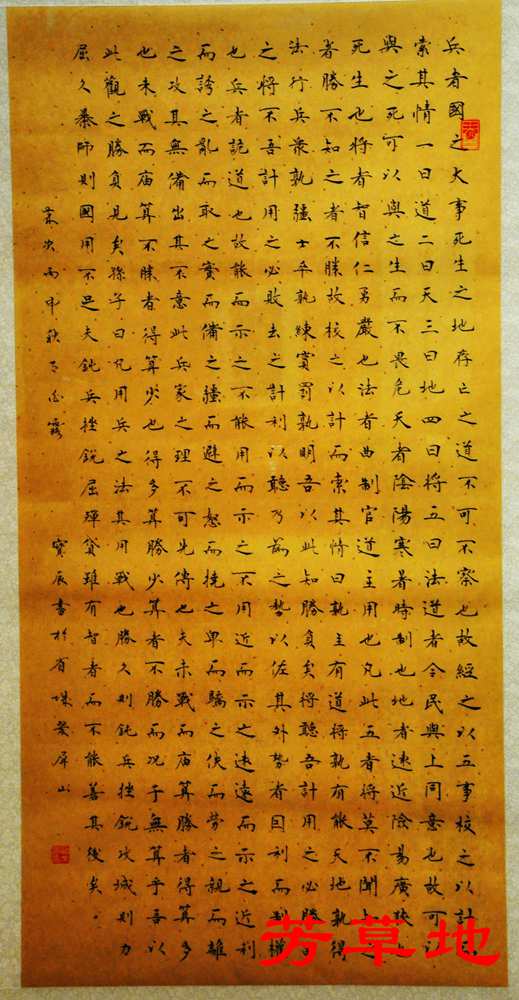 兵者國之大事死生之地存亡之道不可不察也故經之以五事校之以計而
索其情一曰道二曰天三曰地四曰將五曰法道者令民與上同意也故可以
與之死可以與之生而不畏危天者陰陽寒暑時制也地者遠近險易廣狹
死生也將者智信仁勇嚴也法者曲制官道主用也凡此五者將莫不聞之
者勝不知之者不勝故校之以計而索其情曰孰主有道將孰有能天地孰得
法行兵衆孰強士卒孰練賞罰孰明吾以此知勝負矣將聽吾計用之必勝
之將不吾計用之必敗去之計利以聽乃為之勢以佐其外勢者因利而制權
也兵者詭道也故能而示之不能用而示之不用近而示之遠遠而示之近利
而誘之亂而取之實而備之強而避之怒而撓之卑而驕之佚而勞之親而離
之攻其無備出其不意此兵家之理不可先傳也夫未戰而庙算勝者得算多
也未戰而庙算不勝者得算少也得多算勝少算者不勝而况于無算乎吾以
此觀之勝負見矣孫子曰凡用兵之法其用戰也勝久則鈍兵挫銳攻城則力
屈久暴師則國用不足夫鈍兵挫銳屈殫貨雖有智者而不能善其後矣
歲次丙申秋月白露 寶辰書於省垣翠屏山
芳草地